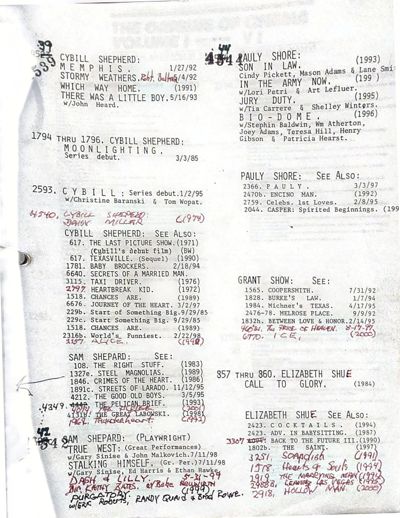 CYBILL SHEPHERD:
MEMPHIS. 1/27/92
STORMY WEATHERS. 5/4/92
WHICH WAY HOME. (1991)
THERE WAS A LITTLE BOY. 5/16/93
w/John Heard.
1794 THRU 1796. CYBILL SHEPHERD:
MOONLIGHTING.
Series debut. 3/3/85
2593. CYBILL: Series debut.1/2/95
w/Christine Baranski & Tom Wopat.
4540. CYBILL SHEPHERD
DAISY MILLER (1974)
CYBILL SHEPHERD: SEE ALSO:
617. THE LAST PICTURE SHOW.(1971)
(Cybill's debut film) (BW)
617. TEXASVILLE. (Sequel) (1990)
1781. BABY BROCKERS. 2/18/94
6640. SECRETS OF A MARRIED MAN.
3115. TAXI DRIVER. (1976)
2797. HEARTBREAK KID. (1972)
1318. CHANCES ARE. (1989)
6676. JOURNEY OF THE HEART. 3/2/97
229b. Start of Something Big.9/29/85
229c. Start Something Big. 9/29/85
1318. CHANCES ARE. (1989)
2316b. World's Funniest. 2/22/98
3157. ALICE.
SAM SHEPARD: SEE:
108. THE RIGHT STUFF. (1983)
1327e. STEEL MAGNOLIAS. (1989)
1846. CRIMES OF THE HEART. (1986)
1891c. STREETS OF LARADO. 11/12/95
4212. THE GOOD OLD BOYS. 3/5/95
THE PELICAN BRIEF. (1993)
4349.
THE GREAT LABOWSKI. (1998)
Thunderheart (1992)
SAM SHEPARD: (PLAYWRIGHT)
TRUE WEST: (Great Performances)
w/Gary Sinise & John Malkovich.7/11/98
STALKING HIMSELF. (Gr. Per.)7/11/98
w/Gary Sinise, Ed Harris & Ethan Hawke.
DASH & LILLY. 5-31-99
KATHY BATES.
PURGATORY. (1999)
w/ERIC ROBERTS, RANDY QUAID & BRAD ROWE.
PAULY SHORE: (1993)
SON IN LAW.
Cindy Pickett, Mason Adams & Lane Smi
IN THE ARMY NOW. (199 )
w/Lori Petri & Art Lefluer.
JURY DUTY. (1995)
w/Tia Carrere & Shelley Winters.
BIO-DOME. (1996)
w/Stephin Baldwin, Wm Atherton,
Joey Adams, Teresa Hill, Henry
Gibson & Patricia Hearst.
PAULY SHORE: SEE ALSO:
2366. PAULY. 3/3/97
2470b. ENCINO MAN. (1992)
2759. Celebs. 1st Loves. 2/8/95
2044. CASPER: Spirited Beginnings. (199
GRANT SHOW: SEE:
1565. COOPERSMITH. 7/31/92
1828. BURKE'S LAW. 1/7/94
1984. Michner's TEXAS. 4/17/95
2476-78. MELROSE PLACE. 9/9/92
1832h. BETWEEN LOVE & HONOR.2/14/95
THE PRICE OF HEAVEN.
6770. ICE. (2000)
857 THRU 860. ELIZABETH SHUE
CALL TO GLORY. (1984)
ELIZABETH SHUE. SEE ALSO:
2423. COCKTAILS. (1994)
2423. ADV. IN BABYSITTING. (1987)
3307. BACK TO THE FUTURE III.(1990)
1802b. THE SAINT. (1997)
3251. SOAPDISH (1991)
1518. Hearts & Souls
1919. THE MARRYING MAN
LEAVING LAS VEGAS (1995)
2918. HOLLOW MAN. (2000)